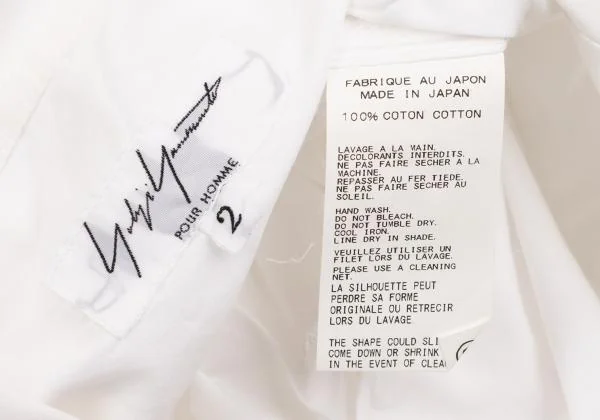 Yohji Yamamoto
POUR HOMME
2
FABRIQUE AU JAPON
MADE IN JAPAN
100% COTON COTTON
LAVAGE A LA MAIN.
DECOLORANTS INTERDITS.
NE PAS FAIRE SECHER A LA
MACHINE.
REPASSER AU FER TIEDE.
NE PAS FAIRE SECHER AU
SOLEIL.
HAND WASH.
DO NOT BLEACH.
DO NOT TUMBLE DRY.
COOL IRON.
LINE DRY IN SHADE.
VEUILLEZ UTILISER UN
FILET LORS DU LAVAGE.
PLEASE USE A CLEANING
NET.
LA SILHOUETTE PEUT
PERDRE SA FORME
ORIGINALE OU RETRECIR
LORS DU LAVAGE
THE SHAPE COULD SLI
COME DOWN OR SHRINK
IN THE EVENT OF CLEA